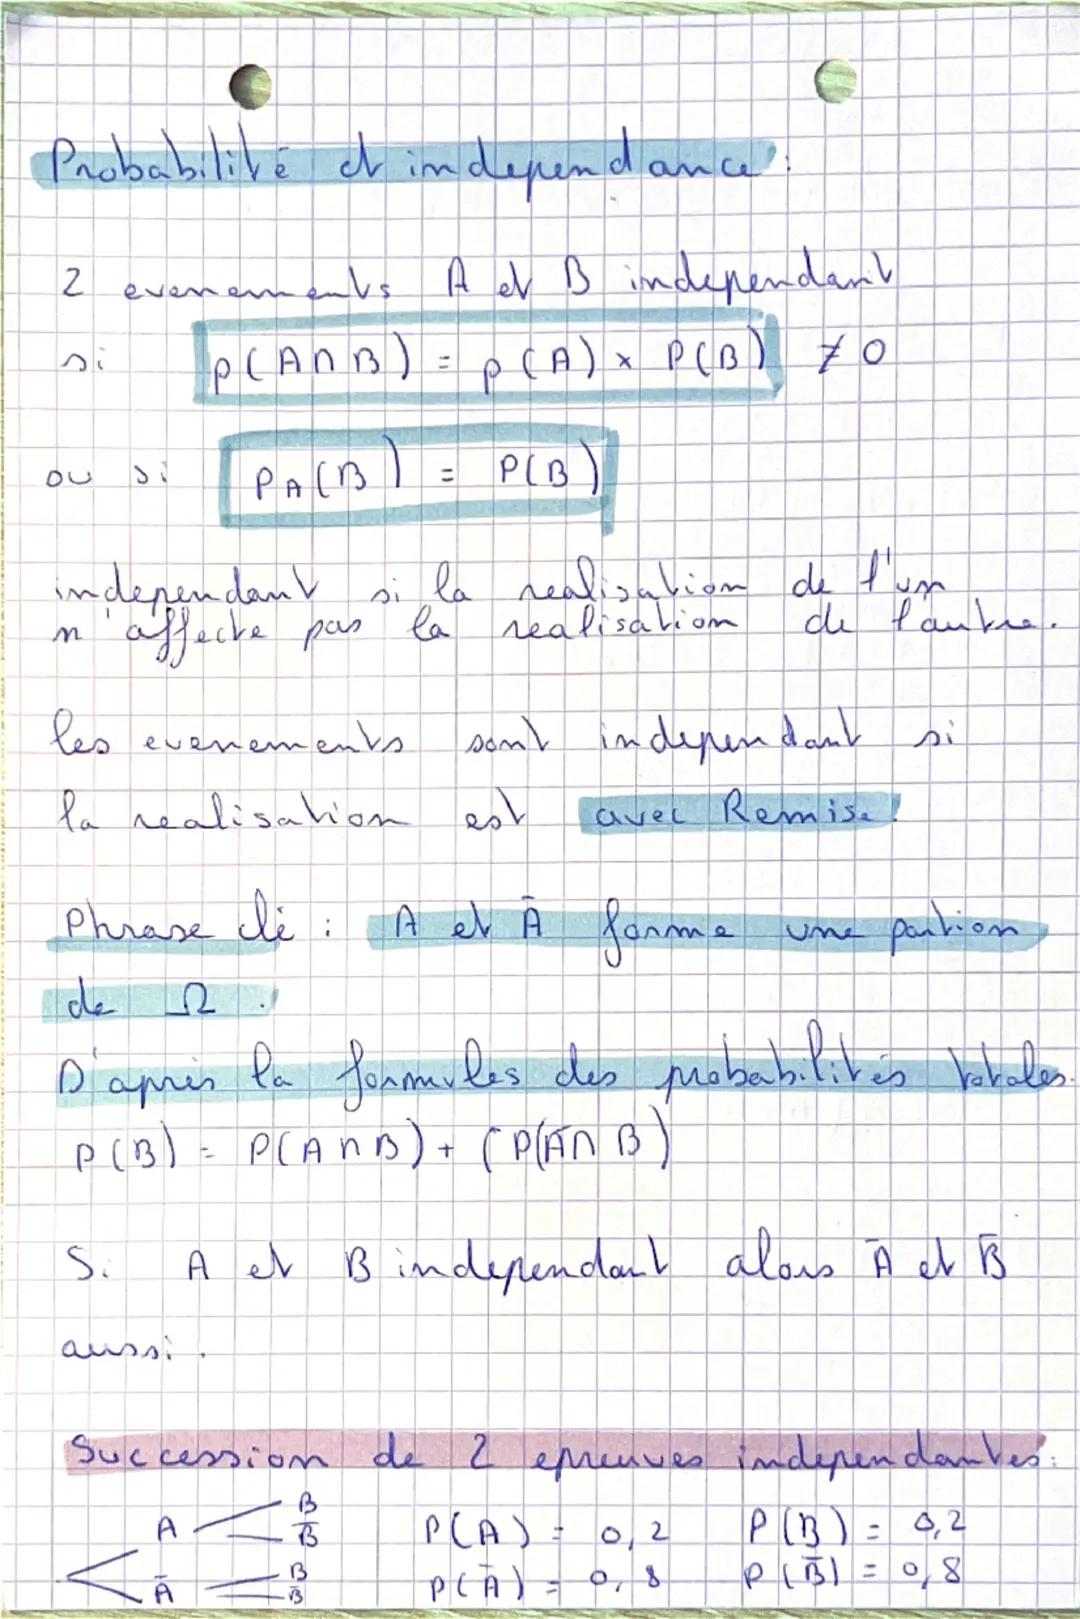 Probabilité et independance :
2 evenements A et B independant
si p(A∩B) = p(A) x P(B) ≠ 0
ou si PA(B) = P(B)
independant si la realisation de l'un
n'affecte pas la realisation de l'autre.
les evenements sont independant si
la realisation est avec Remise !
Phrase clé : A et Ā forme une partion
de Ω.
D'après la formules des probabilités totales.
P(B) = P(A∩B) + (P(Ā∩B)
Si A et B independant alors Ā et B̄
aussi.
Succession de 2 epreuves independantes :
B
A B̄ P(A) = 0,2 P(B) = 0,2
B
Ā B̄ P(Ā) = 0,8 P(B̄) = 0,8